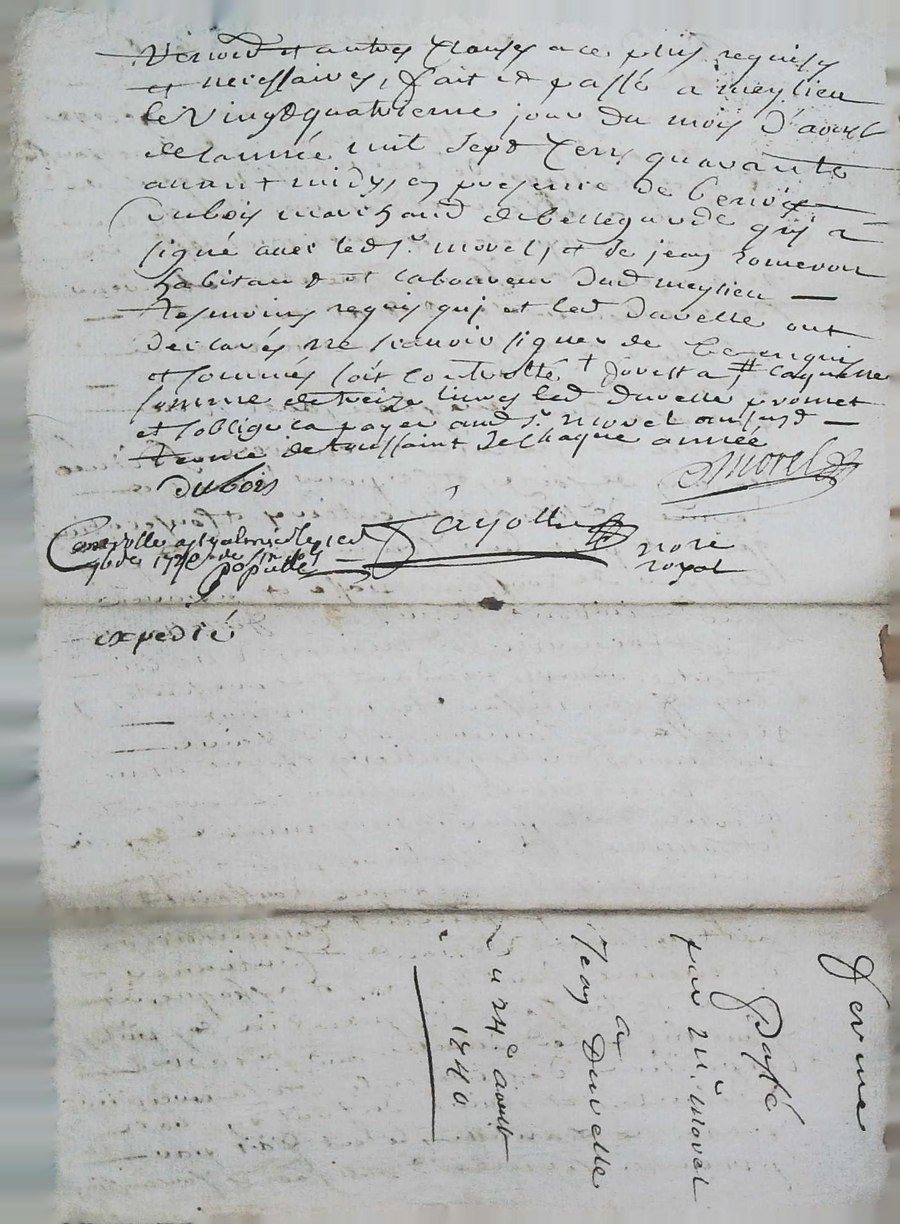 et autres clauses a ce plus requises
et necessaires, fait et passé a meylieu
le vingt quatrieme jour du mois d'aoust
de lannée mil sept cens quarante
avant midy en presence de benoist
dubois marchand de bellegarde quy a
signé avec led sr. morel, et de jean
habitant et laboureur dud meylieu
tesmoins requis quy et led duvelle ont
declarés ne scavoir signer de ce enquis
et sommés soit controllé
somme de treize livres led duvelle promet
et soblige a payer aud sr. morel au susd
terme de toussaint de chaque année
Dubois
Morel
nore
royal
expedié
ferme
Passé
par Mr. morel
a
Jean Duvelle
Du 24e aoust
1740